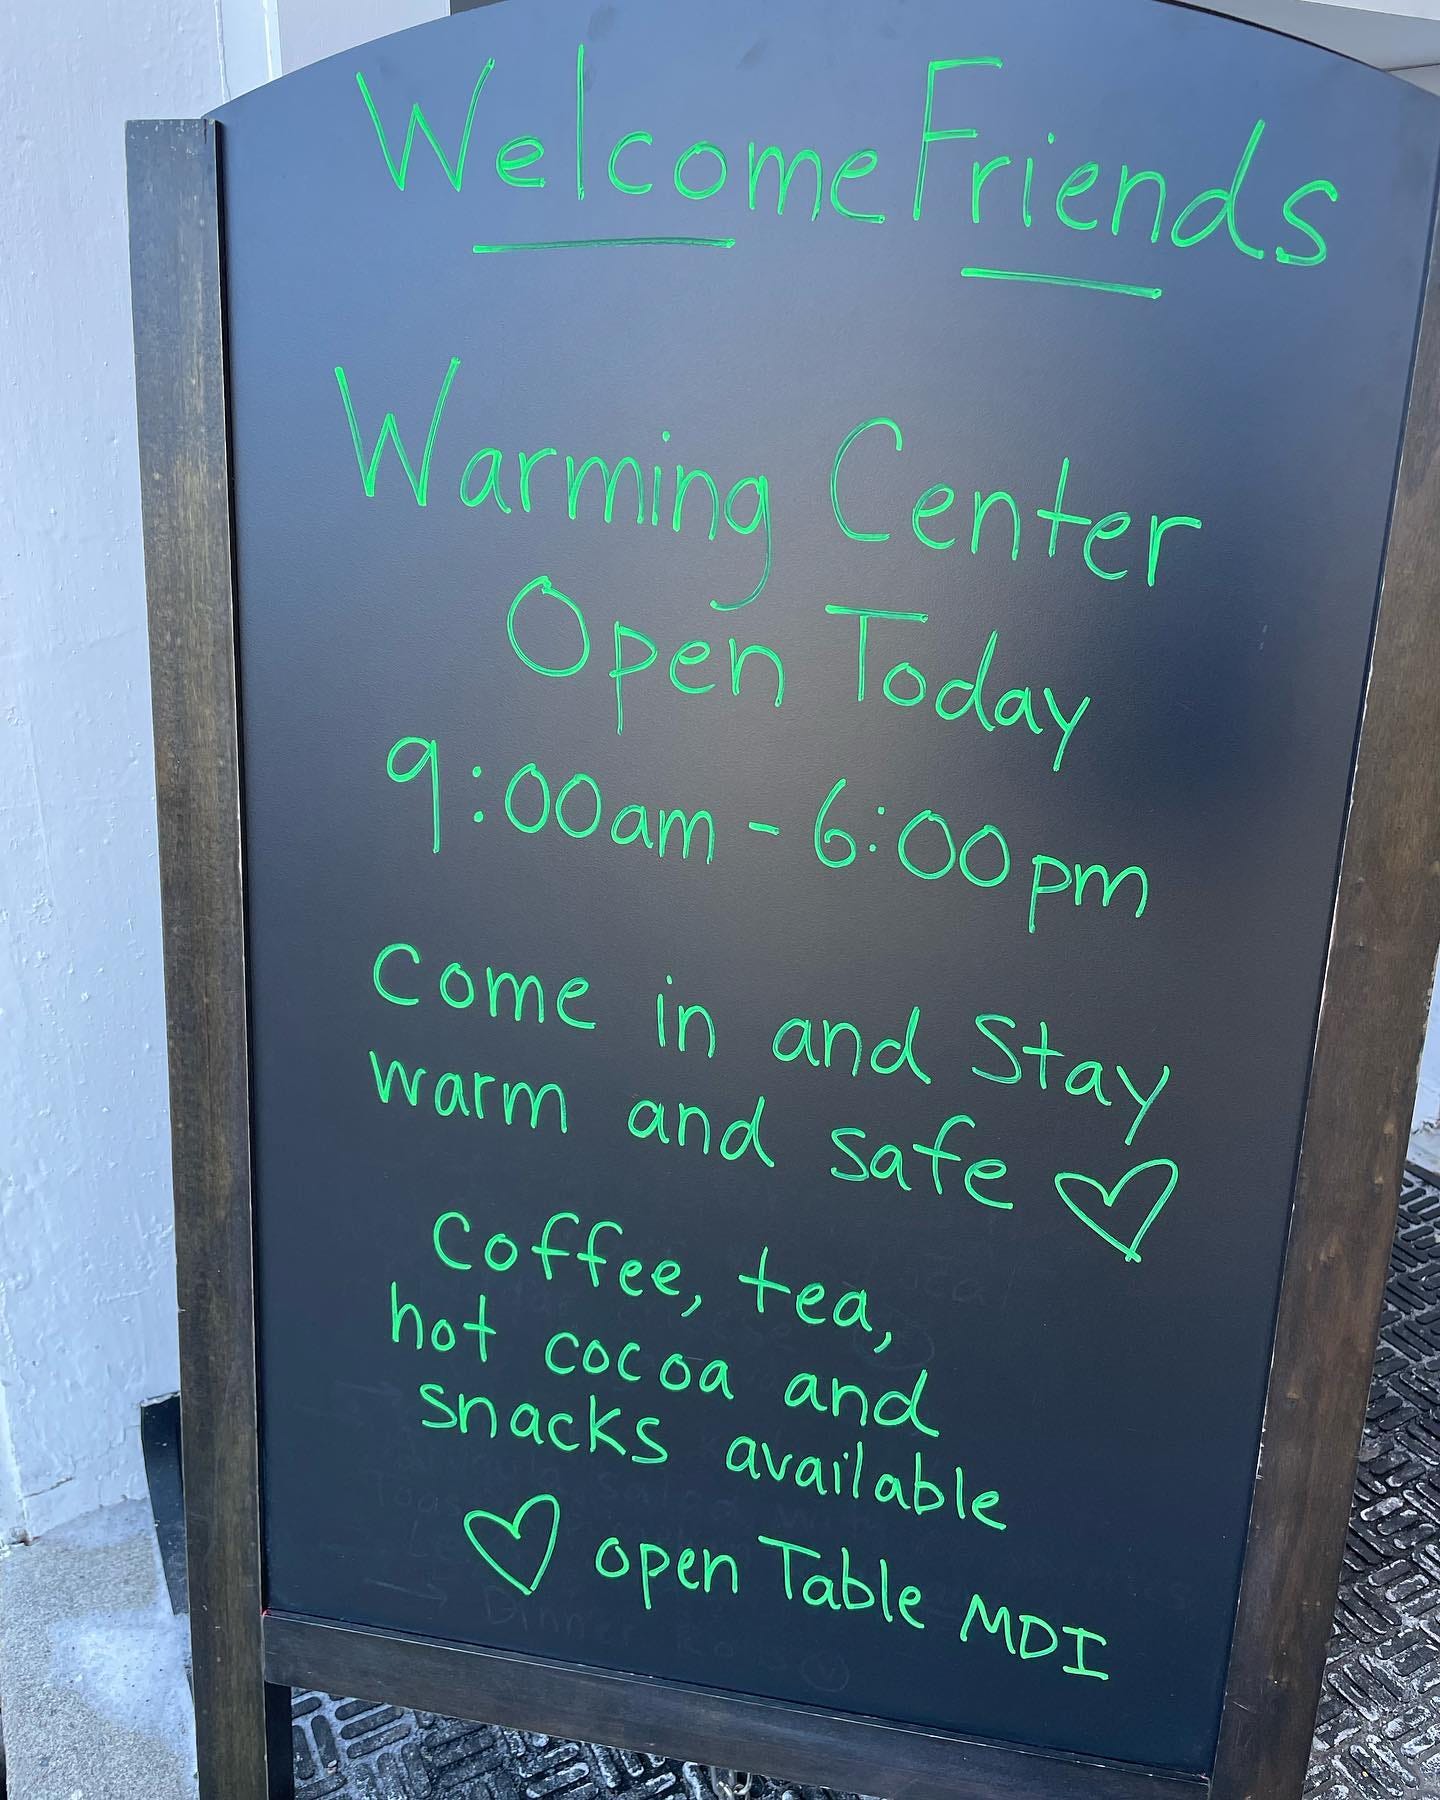 Welcome Friends
Warming Center
Open Today
9:00am - 6:00pm
Come in and Stay
warm and safe ♡
Coffee, tea,
hot cocoa and
snacks available
♡ open Table MDI
Dinner